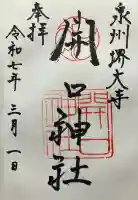 泉州堺大寺
開口神社
奉拝
令和七年三月一日